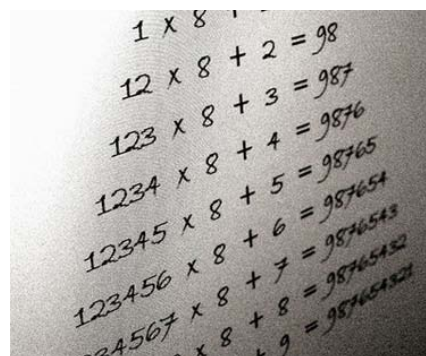 1 x 8 +
12 x 8 + 2 = 98
123 x 8 + 3 = 987
1234 x 8 + 4 = 9876
12345 x 8 + 5 = 98765
123456 x 8 + 6 = 987654
234567 x 8 + 7 = 9876543
x 8 + 8 = 98765432
+ 9 = 987654321